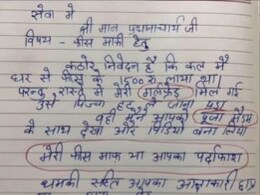 सेवा में
श्री मान प्रधानाचार्य जी
विषय - फीस माफी हेतु
कठोर निवेदन है कि कल मैं
घर से फीस के 1500 रु लाया था।
परन्तु रास्ते में मेरी गर्लफ्रेंड मिल गई
उसे पिज्जा ले जाना पड़ा
वहाँ मैंने आपको पूजा मैडम
के साथ देखा और विडियो बना लिया
मेरी फीस माफ या आपका पर्दाफाश
धमकी सहित आपका आज्ञाकारी छात्र